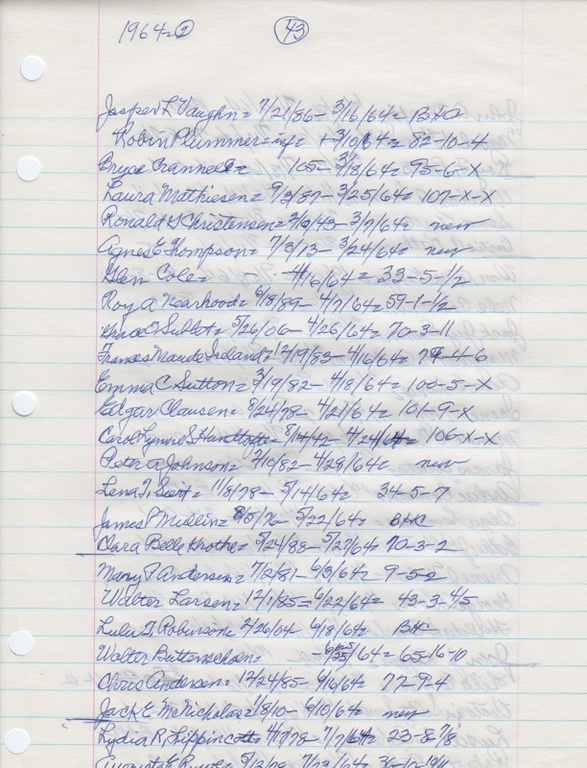 1964=② 43
Jasper L Vaughn= 7/21/86- 3/16/64= B+C
Robin Plummer= inf= + 3/10/64= 82-10-4
Bryce Crannell= 105- 3/18/64= 95-6-X
Laura Mathiesen= 9/3/87- 3/25/64= 107-X-X
Ronald G Christensen= 2/19/43- 3/7/64= new
Agnes E Thompson= 7/3/13- 3/24/64= new
Glen Cole= - - 4/16/64= 33-5-1/2
Roy A Nearhood= 6/8/89- 4/7/64= 59-1-1/2
Grace E Sublet= 5/26/06- 4/26/64= 70-3-11
Frances Maude Ireland= 12/19/83- 4/16/64= 79-4-6
Emma C Sutton= 3/19/82- 4/8/64= 100-5-X
Edgar Clausen= 8/24/78- 4/21/64= 101-9-X
Carol Lynne S= 8/14/42- 4/24/64= 106-X-X
Peter A Johnson= 2/10/82- 4/28/64= new
Lena T, 11/8/78- 5/14/64= 34-5-7
James P 8/5/76- 5/22/64= B+C
Clara Belle Krothe= 5/24/88- 5/27/64= 70-3-2
Mary P Andersen= 7/2/81- 6/3/64= 9-5-2
Walter Larsen= 12/1/85= 6/22/64= 43-3-4/5
Lulu T. Robinson= 2/26/04- 6/18/64= B+C
Walter Buttenschoen= /64= 65-16-10
Chris Andersen= 12/24/85- 9/16/64= 77-9-4
Jack E McNicholas= 1/8/10- 6/10/64= new
Lydia R, Lippincott= 4/7/78- 7/7/64= 23-8-7/8